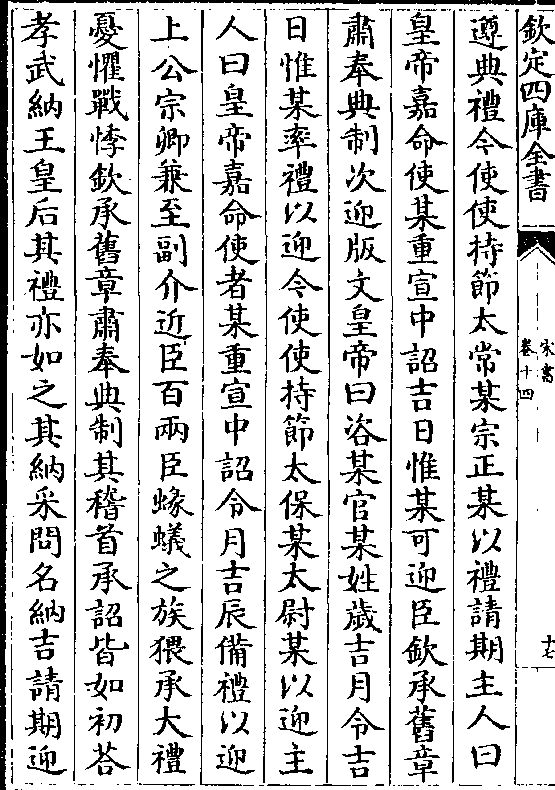 欽定四庫全書
宋書
卷十四
十七
遵典禮今使使持節太常某宗正某以禮請期主人曰
皇帝嘉命使某重宣中詔吉日惟某可迎臣欽承舊章
肅奉典制次迎版文皇帝曰咨某官某姓歲吉月令吉
日惟某率禮以迎今使使持節太保某太尉某以迎主
人曰皇帝嘉命使者某重宣中詔令月吉辰備禮以迎
上公宗卿兼至副介近臣百兩臣蝝蟻之族猥承大禮
憂懼戰悸欽承舊章肅奉典制其稽首承詔皆如初荅
孝武納王皇后其禮亦如之其納采問名納吉請期迎